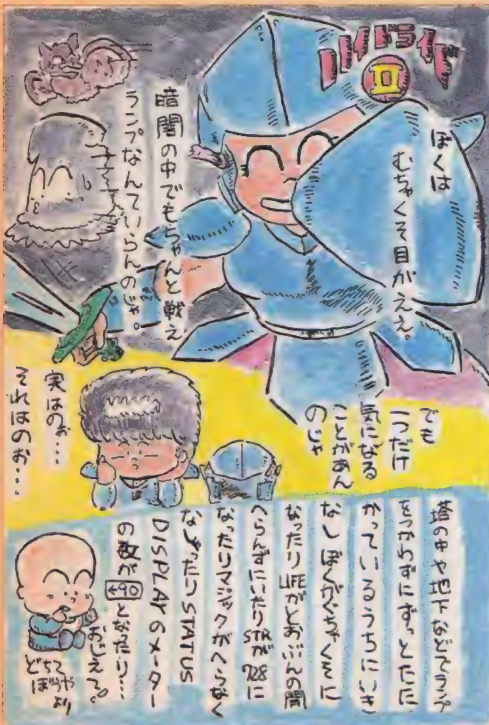 ハイドライド
II
ぼくは
むちゃくそ目がええ。
暗闇の中でもちゃんと戦え
ランプなんていらんのじゃ。
でも
一つだけ
気になる
ことがあん
のじゃ
実はのぉ…
それはのぉ…
塔の中や地下などでランプ
をつかわずにずっとたた
かっているうちにいき
なしぼくがぐちゃくそに
なったりLIFEがとおぶんの間
へらんずにいたりSTRが728に
なったりマジックがへらなく
なしったりSTATUS
DISPLAYのメーター
の数が となったり…
おじえて。
どちて
ぼうやより